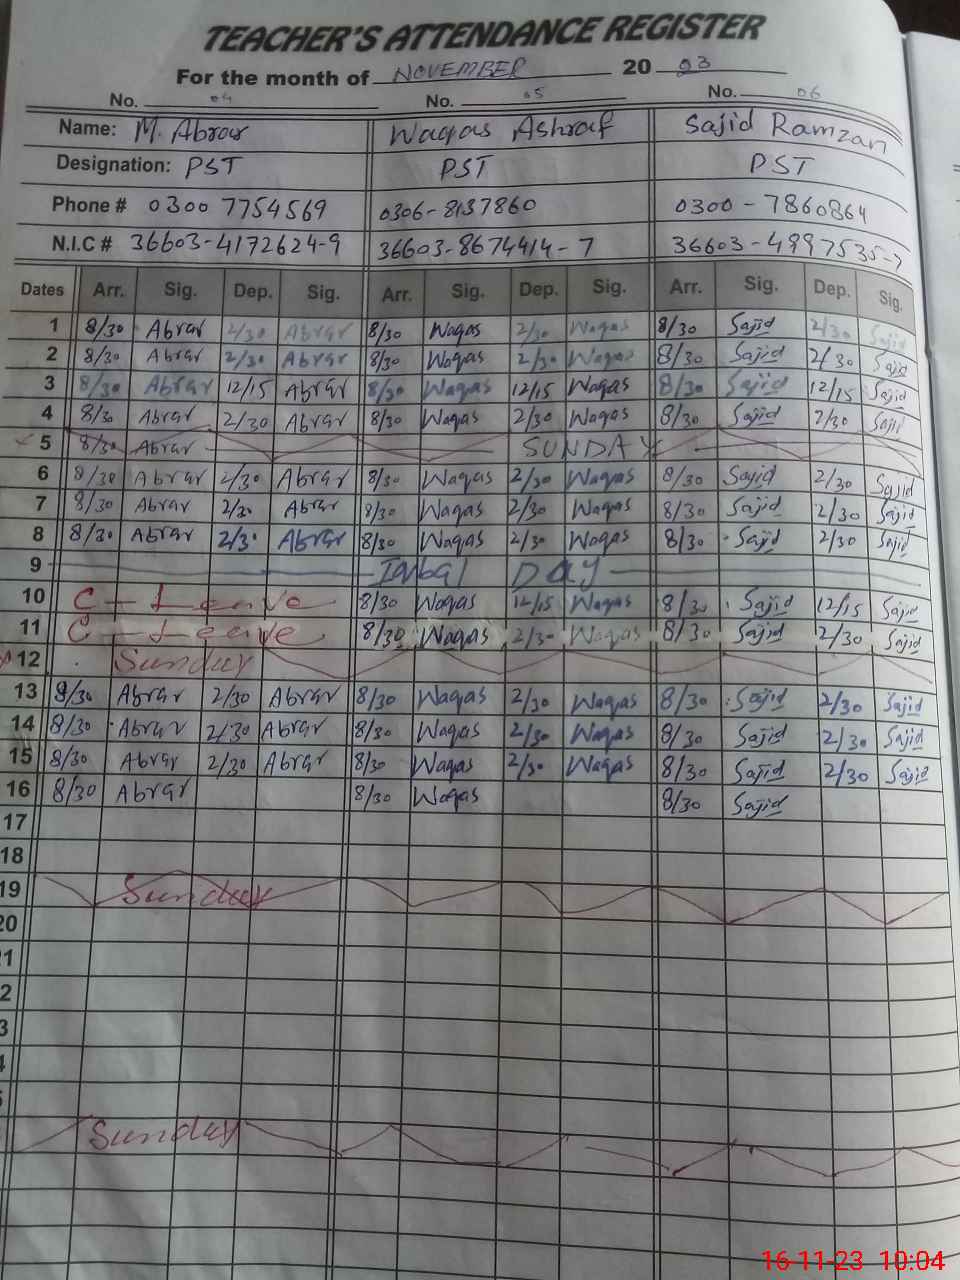 TEACHER'S ATTENDANCE REGISTER
For the month of NOVEMBER 20 23
No. 04 No. 05 No. 06
Name: M. Abrar Waqas Ashraf Sajid Ramzan
Designation: PST PST PST
Phone # 0300 7754569 0306-8137860 0300-7860864
N.I.C # 36603-4172624-9 36603-8674414-7 36603-4997535-7
Dates Arr. Sig. Dep. Sig. Arr. Sig. Dep. Sig. Arr. Sig. Dep. Sig.
1 8/30 Abrar 2/30 Abrar 8/30 Waqas 2/30 Waqas 8/30 Sajid 2/30 Sajid
2 8/30 Abrar 2/30 Abrar 8/30 Waqas 2/30 Waqas 8/30 Sajid 2/30 Sajid
3 8/30 Abrar 12/15 Abrar 8/30 Waqas 12/15 Waqas 8/30 Sajid 12/15 Sajid
4 8/30 Abrar 2/30 Abrar 8/30 Waqas 2/30 Waqas 8/30 Sajid 2/30 Sajid
5 8/30 Abrar SUNDAY
6 8/30 Abrar 2/30 Abrar 8/30 Waqas 2/30 Waqas 8/30 Sajid 2/30 Sajid
7 8/30 Abrar 2/30 Abrar 8/30 Waqas 2/30 Waqas 8/30 Sajid 2/30 Sajid
8 8/30 Abrar 2/30 Abrar 8/30 Waqas 2/30 Waqas 8/30 Sajid 2/30 Sajid
9 Iqbal DAY
10 C-Leave 8/30 Waqas 12/15 Waqas 8/30 Sajid 12/15 Sajid
11 C-Leave 8/30 Waqas 2/30 Waqas 8/30 Sajid 2/30 Sajid
12 Sunday
13 8/30 Abrar 2/30 Abrar 8/30 Waqas 2/30 Waqas 8/30 Sajid 2/30 Sajid
14 8/30 Abrar 2/30 Abrar 8/30 Waqas 2/30 Waqas 8/30 Sajid 2/30 Sajid
15 8/30 Abrar 2/30 Abrar 8/30 Waqas 2/30 Waqas 8/30 Sajid 2/30 Sajid
16 8/30 Abrar 8/30 Waqas 8/30 Sajid
17
18
19 Sunday
20
1
2
3
4
Sunday
16-11-23 10:04